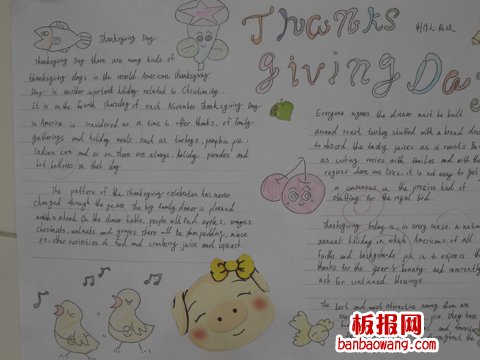 Thanks
Giving Day
制作人
Thanksgiving Day
Thanksgiving Day there are many kinds of
thanksgiving days in the world. American Thanksgiving
Day is another important holiday related to Christianity.
It is on the fourth Thursday of each November. Thanksgiving Day
in America is considered as a time to offer thanks, of family
gatherings and holiday meals. Such as turkeys, pumpkin pie,
Indian corn and so on. There are always holiday parades and
hot balloons on that day.
The pattern of the Thanksgiving celebration has never
changed through the years. The big family dinner is planned
months ahead. On the dinner table, people will find apples, oranges,
chestnuts, walnuts and grapes. There will be plum pudding, mince
pie, other varieties of food and cranberry juice and squash.
Everyone agrees the dinner must be built
around roast turkey stuffed with a bread dressing
to absorb the tasty juices as it roasts. But
as cooking varies with families and with the
regions where one lives, it is not easy to get
a consensus on the precise kind of
stuffing for the royal bird.
Thanksgiving today is, in every sense, a national
annual holiday in which Americans of all
faiths and backgrounds join in to express their
thanks for the year's bounty and reverently
ask for continued blessings.
The best and most attractive among them are
pie. They have
and
throughout the
板报网
banbaowang.com